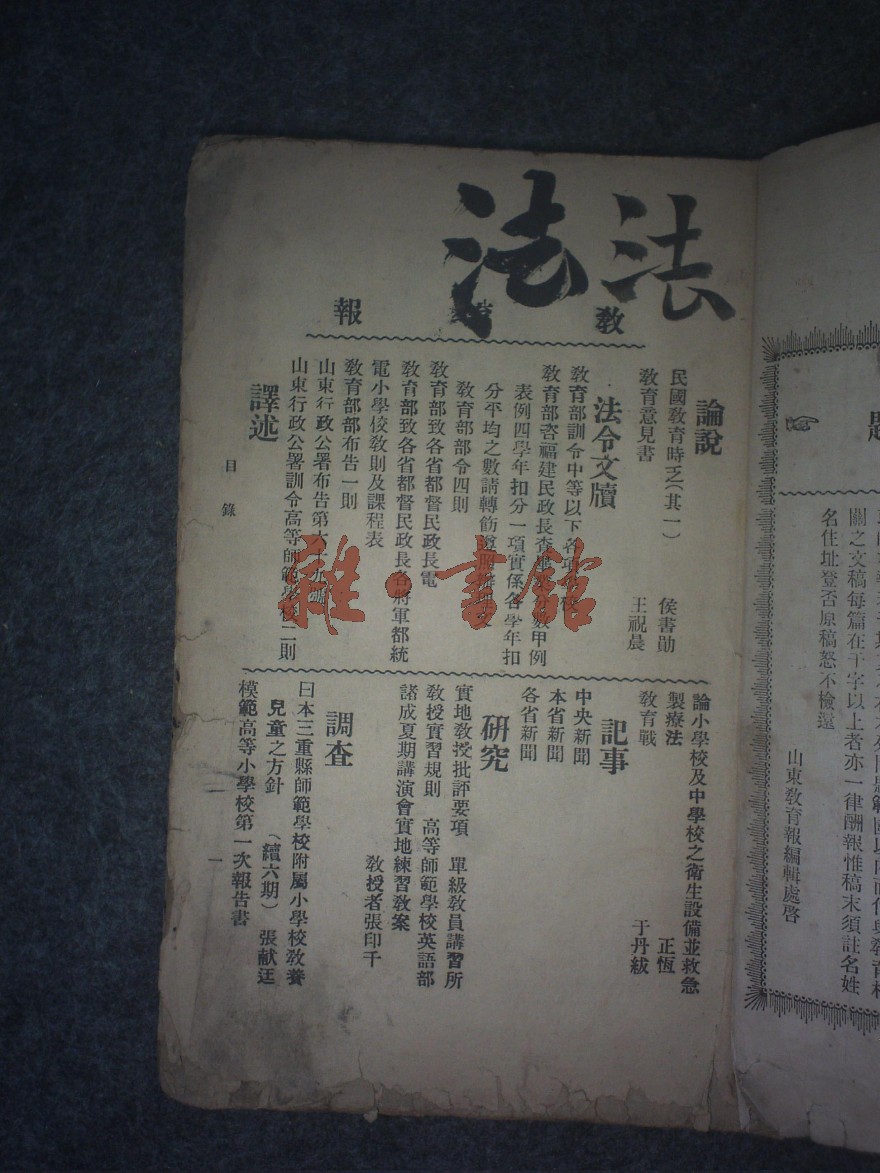 法法
教育報
論說
民國教育時乏(其一)　侯書勛
教育意見書　王祝晨
法令文牘
教育部訓令中等以下各項
教育部咨福建民政長查畢業分數甲例
表例四學年扣分一項實係各學年扣
分平均之數請轉飭遵照辦理文
教育部部令四則
教育部致各省都督民政長電
教育部致各省都督民政長各將軍都統
電小學校教則及課程表
教育部部布告一則
山東行政公署布告第六十九號
山東行政公署訓令高等師範學校二則
譯述
論小學校及中學校之衛生設備並救急
製療法　正恆
教育戰　于丹紱
記事
中央新聞
本省新聞
各省新聞
研究
實地教授批評要項　單級教員講習所
教授實習規則　高等師範學校英語部
諸成夏期講演會實地練習教案
教授者張印千
調查
日本三重縣師範學校附屬小學校教養
兒童之方針　(續六期)　張献廷
模範高等小學校第一次報告書
目錄　一　一
雜·書館
關之文稿每篇在千字以上者亦一律酬報惟稿末須註名姓
名住址登否原稿恕不檢還
山東教育報編輯處啓